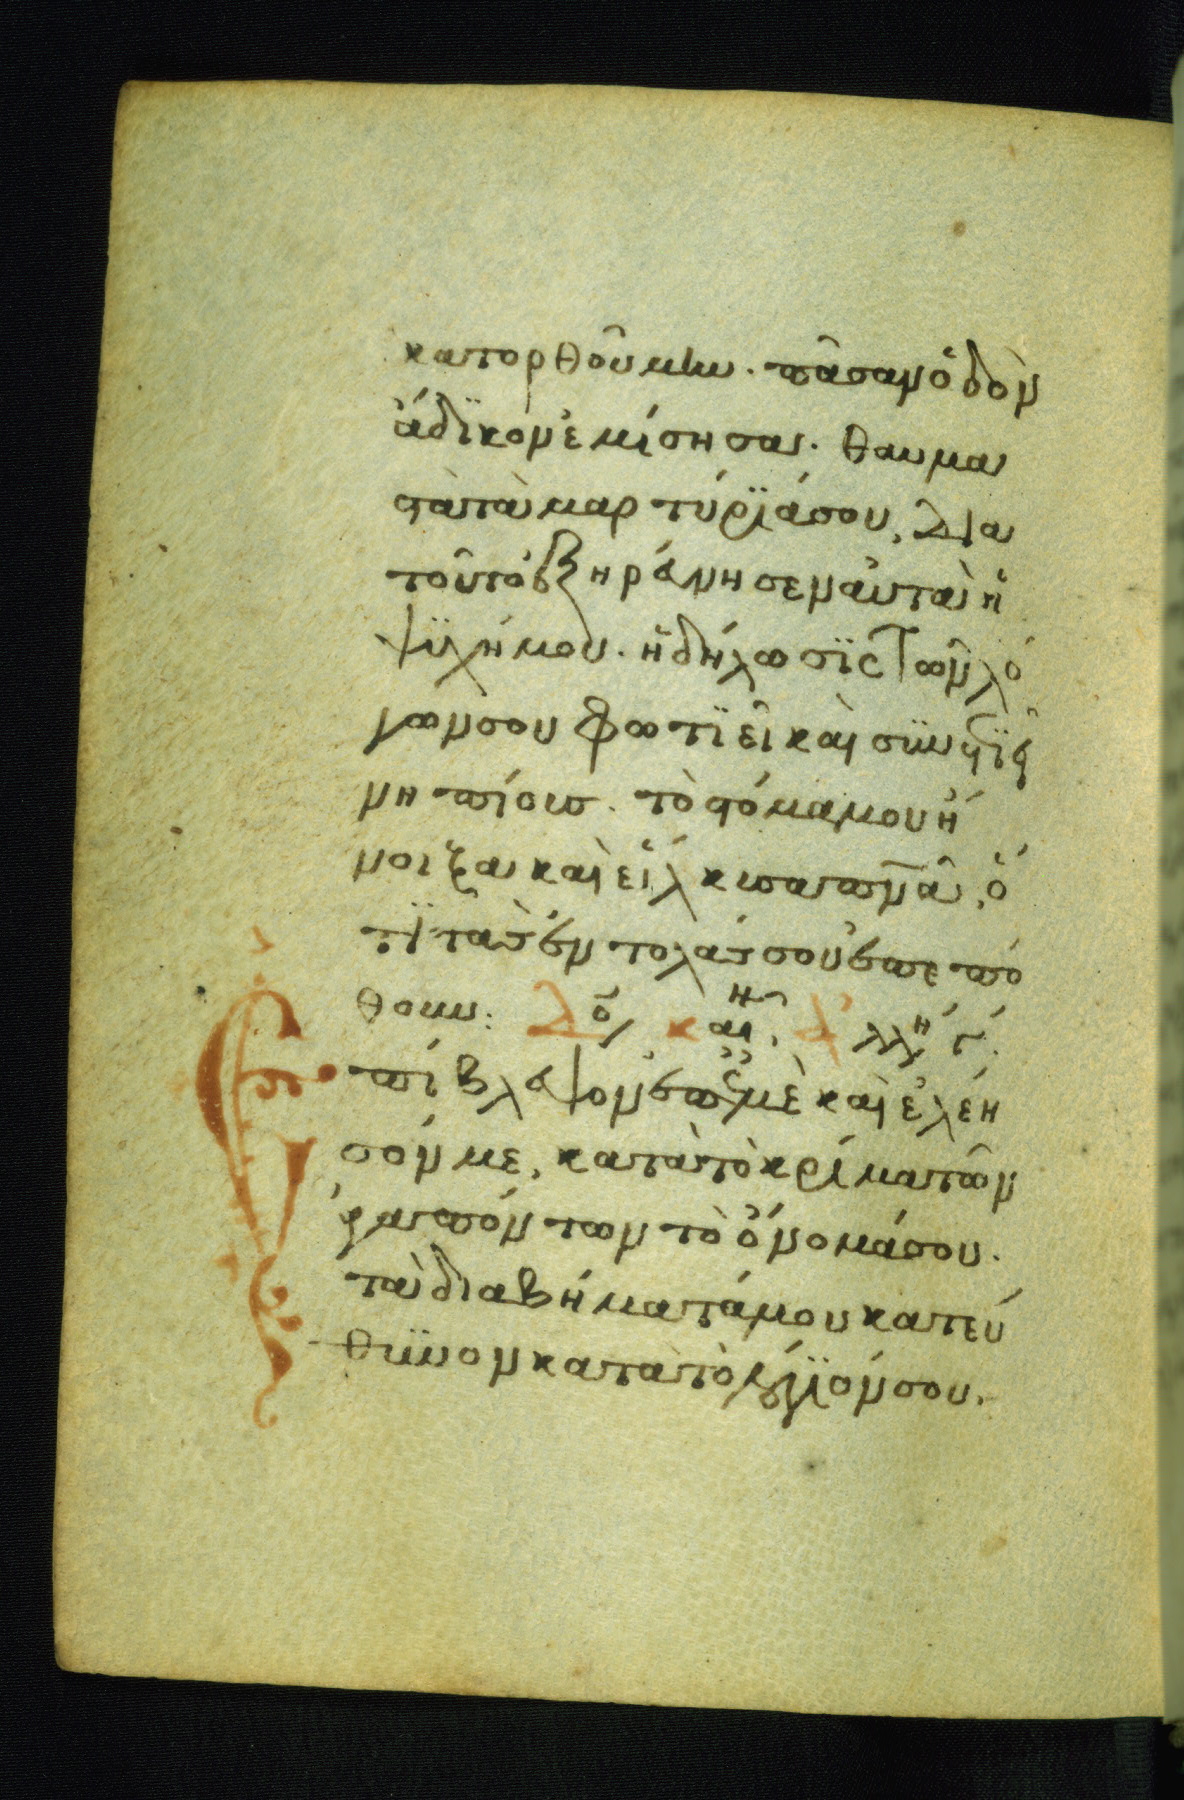 κατορθούμην. πᾶσαν ὁδὸν
ἄδϊκον ἐμίσησα. θαυμα
στὰ τὰ μαρτύρϊά σου, δια
τοῦτο ἐξηράνησεν αὐτὰ ἡ
ψϋχή μου. ἡ δήλωσϊς τῶν λό
γων σου φωτϊεῖ καὶ συνετϊεῖ
νηπίους. τὸ στόμα μου ἤ
νοιξα καὶ εἵλκυσα πνᾶ, ὅ
τϊ τὰς ἐντολάς σου ἐπεπό
θουν: Δό/ καὶ
Ἐπίβλεψον ἐπ ἐμὲ καὶ ἐλέη
σόν με, κατὰ τὸ κρίμα τῶν
ἀγαπόντων τὸ ὄνομά σου.
τὰ διαβήματά μου κατεύ
θυνον κατὰ τὸ λόγϊόν σου.